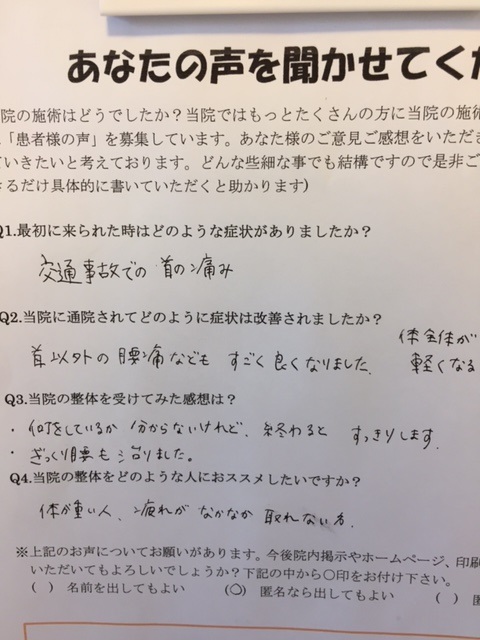 あなたの声を聞かせてくだ
院の施術はどうでしたか？当院ではもっとたくさんの方に当院の施術
「患者様の声」を募集しています。あなた様のご意見ご感想をいただき
ていきたいと考えております。どんな些細な事でも結構ですので是非ご
きるだけ具体的に書いていただくと助かります)
Q1.最初に来られた時はどのような症状がありましたか？
交通事故での首の痛み
Q2.当院に通院されてどのように症状は改善されましたか？
体全体が
首以外の腰痛なども すごく良くなりました。 軽くなる
Q3.当院の整体を受けてみた感想は？
・何をしているか分からないけれど、終わると すっきりします。
・ぎっくり腰も治りました。
Q4.当院の整体をどのような人におススメしたいですか？
体が重い人、疲れが なかなか 取れない方。
※上記のお声についてお願いがあります。今後院内掲示やホームページ、印刷
いただいてもよろしいでしょうか？下記の中から○印をお付け下さい。
( ) 名前を出してもよい (○) 匿名なら出してもよい ( ) 匿